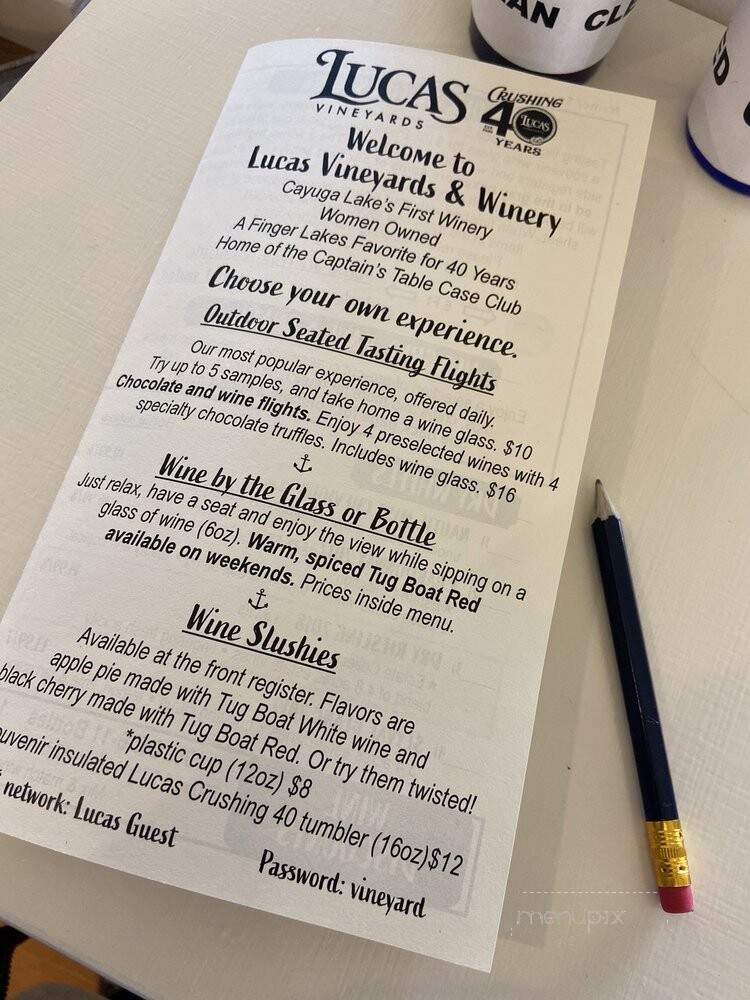 AN CLE
LUCAS
VINEYARDS
CRUSHING
40
LUCAS
YEARS
Welcome to
Lucas Vineyards & Winery
Cayuga Lake's First Winery
Women Owned
A Finger Lakes Favorite for 40 Years
Home of the Captain's Table Case Club
Choose your own experience.
Outdoor Seated Tasting Flights
Our most popular experience, offered daily.
Try up to 5 samples, and take home a wine glass. $10
Chocolate and wine flights. Enjoy 4 preselected wines with 4
specialty chocolate truffles. Includes wine glass. $16
Wine by the Glass or Bottle
Just relax, have a seat and enjoy the view while sipping on a
glass of wine (6oz). Warm, spiced Tug Boat Red
available on weekends. Prices inside menu.
Wine Slushies
Available at the front register. Flavors are
apple pie made with Tug Boat White wine and
black cherry made with Tug Boat Red. Or try them twisted!
*plastic cup (12oz) $8
ouvenir insulated Lucas Crushing 40 tumbler (16oz)$12
network: Lucas Guest
Password: vineyard
menupix